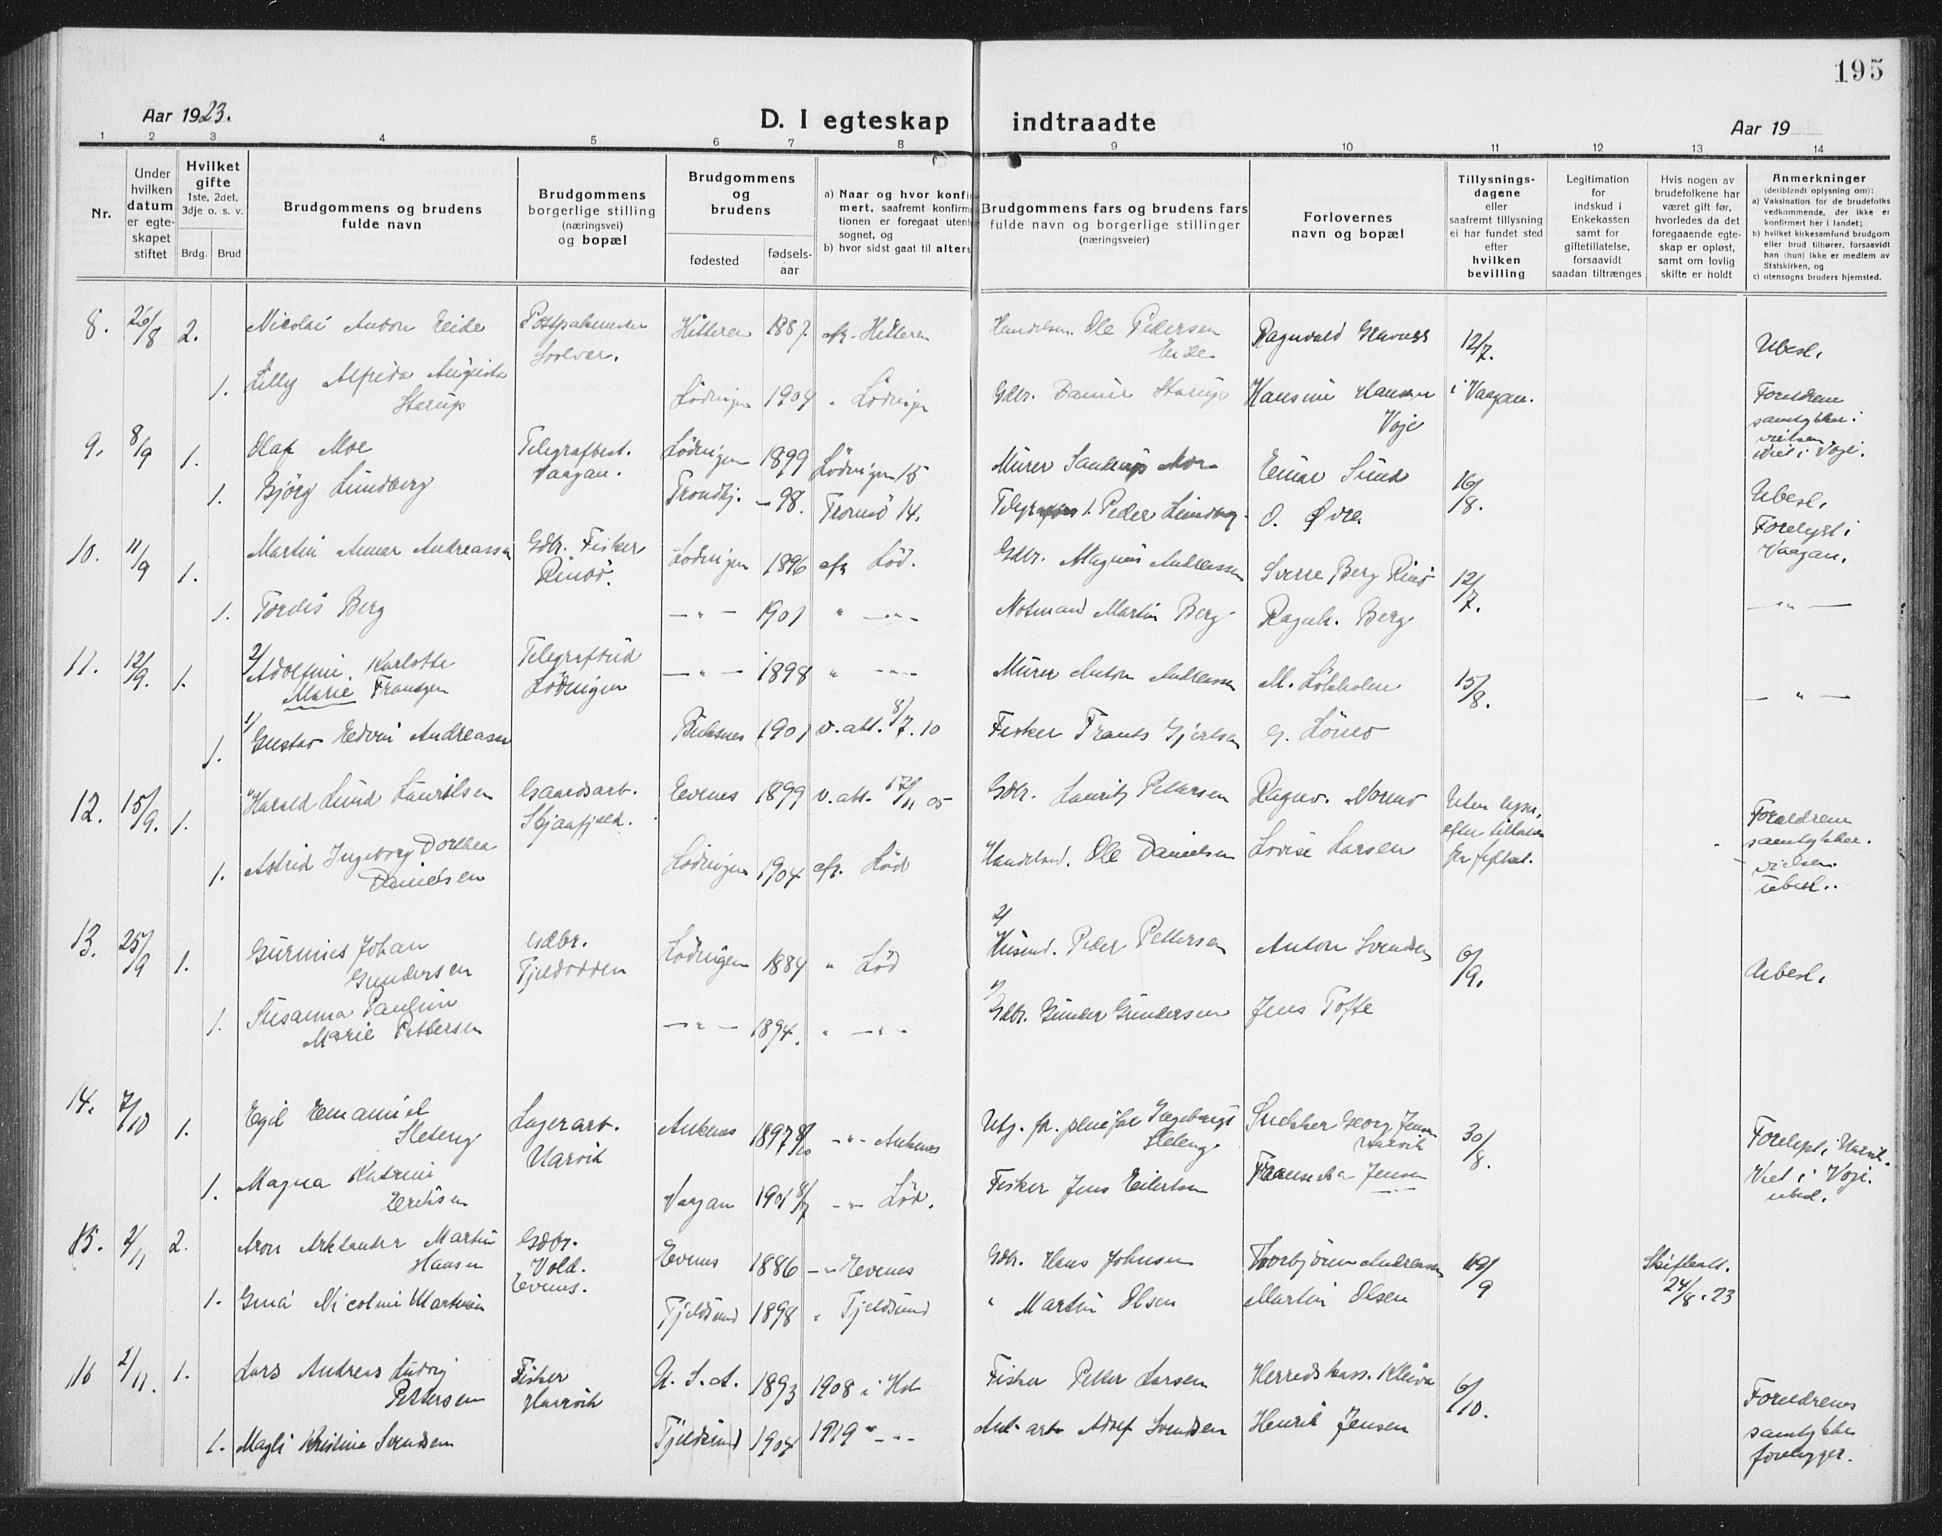 195
Aar 1923.
D. I egteskap indtraadte
Aar 19
1 2 3 4 5 6 7 8 9 10 11 12 13 14
Nr.
Under
hvilken
datum
er egte-
skapet
stiftet
Hvilket
gifte
1ste, 2det,
3dje o. s. v.
Brdg. Brud
Brudgommens og brudens
fulde navn
Brudgommens
borgerlige stilling
(næringsvei)
og bopæl
Brudgommens
og
brudens
fødested
fødsels-
aar
a) Naar og hvor konfir
mert, saafremt konfirm
tionen er foregaat uten
sognet, og
b) hvor sidst gaat til alters
Brudgommens fars og brudens fars
fulde navn og borgerlige stillinger
(næringsveier)
Forlovernes
navn og bopæl
Tillysnings-
dagene
eller
saafremt tillysning
ei har fundet sted
efter
hvilken
bevilling
Legitimation
for
indskud i
Enkekassen
samt for
giftetillatelse,
forsaavidt
saadan tiltrænges
Hvis nogen av
brudefolkene har
været gift før,
hvorledes da det
foregaaende egte-
skap er opløst,
samt om lovlig
skifte er holdt
Anmerkninger
(deriblandt oplysning om):
a) Vaksination for de brudefolks
vedkommende, der ikke er
konfirmert her i landet;
b) hvilket kirkesamfund brudgom
eller brud tilhører, forsaavidt
han (hun) ikke er medlem av
Statskirken, og
c) utensogns bruders hjemsted.
8. 26/8 2. Nicolai Anton Eide
Hitteren 1887. Hitteren
Ole Pedersen
Eide
12/7.
Ubesl.
1. Lilly Alfrida Augusta
Starup
Lødingen 1904 " Lødingen
Gdbr. Starup
Hansine Hansen
Voje
i Vaagan.
Forældrene
samtykker i
vielsen.
Viet i Voje.
9. 8/9 1. Olaf Moe
Telegrafbest.
Vaagan.
Lødingen 1899 Lødingen 15
Murer Moe
Einar Sund
16/8.
Ubesl.
1. Bjørg Lundberg
Trondhj. - 98. Tromsø 14.
Peder Lundberg
O. Øvre.
Forelyst i
Vaagan.
10. 11/9 1. Martin Annar Andreassen
Gdbr. Fisker
Rinø.
Lødingen 1896 Lød.
Gdbr. Magnus Andreassen
Sverre Berg Rinø
12/7.
— " —
1. Tordis Berg
— " — 1901 " — " —
Notmand Martin Berg
Ragnh. Berg
11. 12/9. 1. 2/ Adolfine Karlotte
Marie Frantzen
Telegrafbud
Lødingen
— " — 1898 " — " —
Murer Anton Andreassen
15/8.
— " —
1. 1/ Gustav Edvin Andreassen
Buksnes 1901 v. att. 8/7. 10
Fisker Frants Gjertsen
G. Lönø
12. 15/9. 1. Harald Lund Lauritsen
Gaardsarb.
Skjaafjeld.
Evenes 1899 v. att. 17/11 05
Gdbr. Laurits Pettersen
Ragnv. Normo
Uten lysn.
Forældrene
samtykker.
vielsen.
Ubesl.
1. Astrid Ingeborg Dorthea
Danielsen
Lødingen 1904 Lød
Ole Danielsen
Lovise Larsen
13. 25/9 1. Gurinius Johan
Gundersen
Gdbr.
Fjeldodden
Lødingen 1884 " Lød
2/ Husmd. Peder Pettersen
Anton Svendsen
6/9.
Ubesl.
1. Susanna Pauline
Marie Pettersen
— " — 1894. " — " —
1/ Gdbr. Gunder Gundersen
Jens Tofte
14. 7/10 1. Egil Emanuel
Heleng
Lagerarb.
Narvik
Ankenes 1897 — " — Ankenes
Heleng
Snekker Georg Jensen
Narvik
30/8.
Forelyst i Narvik.
Viet i Voje.
ubesl.
1. Magna Katrine
Eertsen
Vaagan 1901 — " — Lød.
Fisker Jens Eilertsen
Jensen
15. 2/11 2. Aron Arklander Martin
Hansen
Gdbr.
Vold.
Evenes.
Evenes 1886 — " — Evenes
Gdbr. Hans Johnsen
Thorbjørn Andreassen
10/9
Skifteatt.
24/8 . 23
1. Gina Nicoline Martinsen
Tjeldsund 1898 " Tjeldsund
" Martin Olsen
Martin Olsen
16 2/11. 1. Lars Andreas Ludvig
Pettersen
Fisker
Narvik
U. S. A. 1893 1908 i Hol
Fisker Petter Larsen
Herredskass. Kleiva
6/10.
Forældrenes
samtykke
foreligger.
1. Magli Kristine Svendsen
Tjeldsund 1904 1919 " — " —
Adolf Svendsen
Henrik Jensen